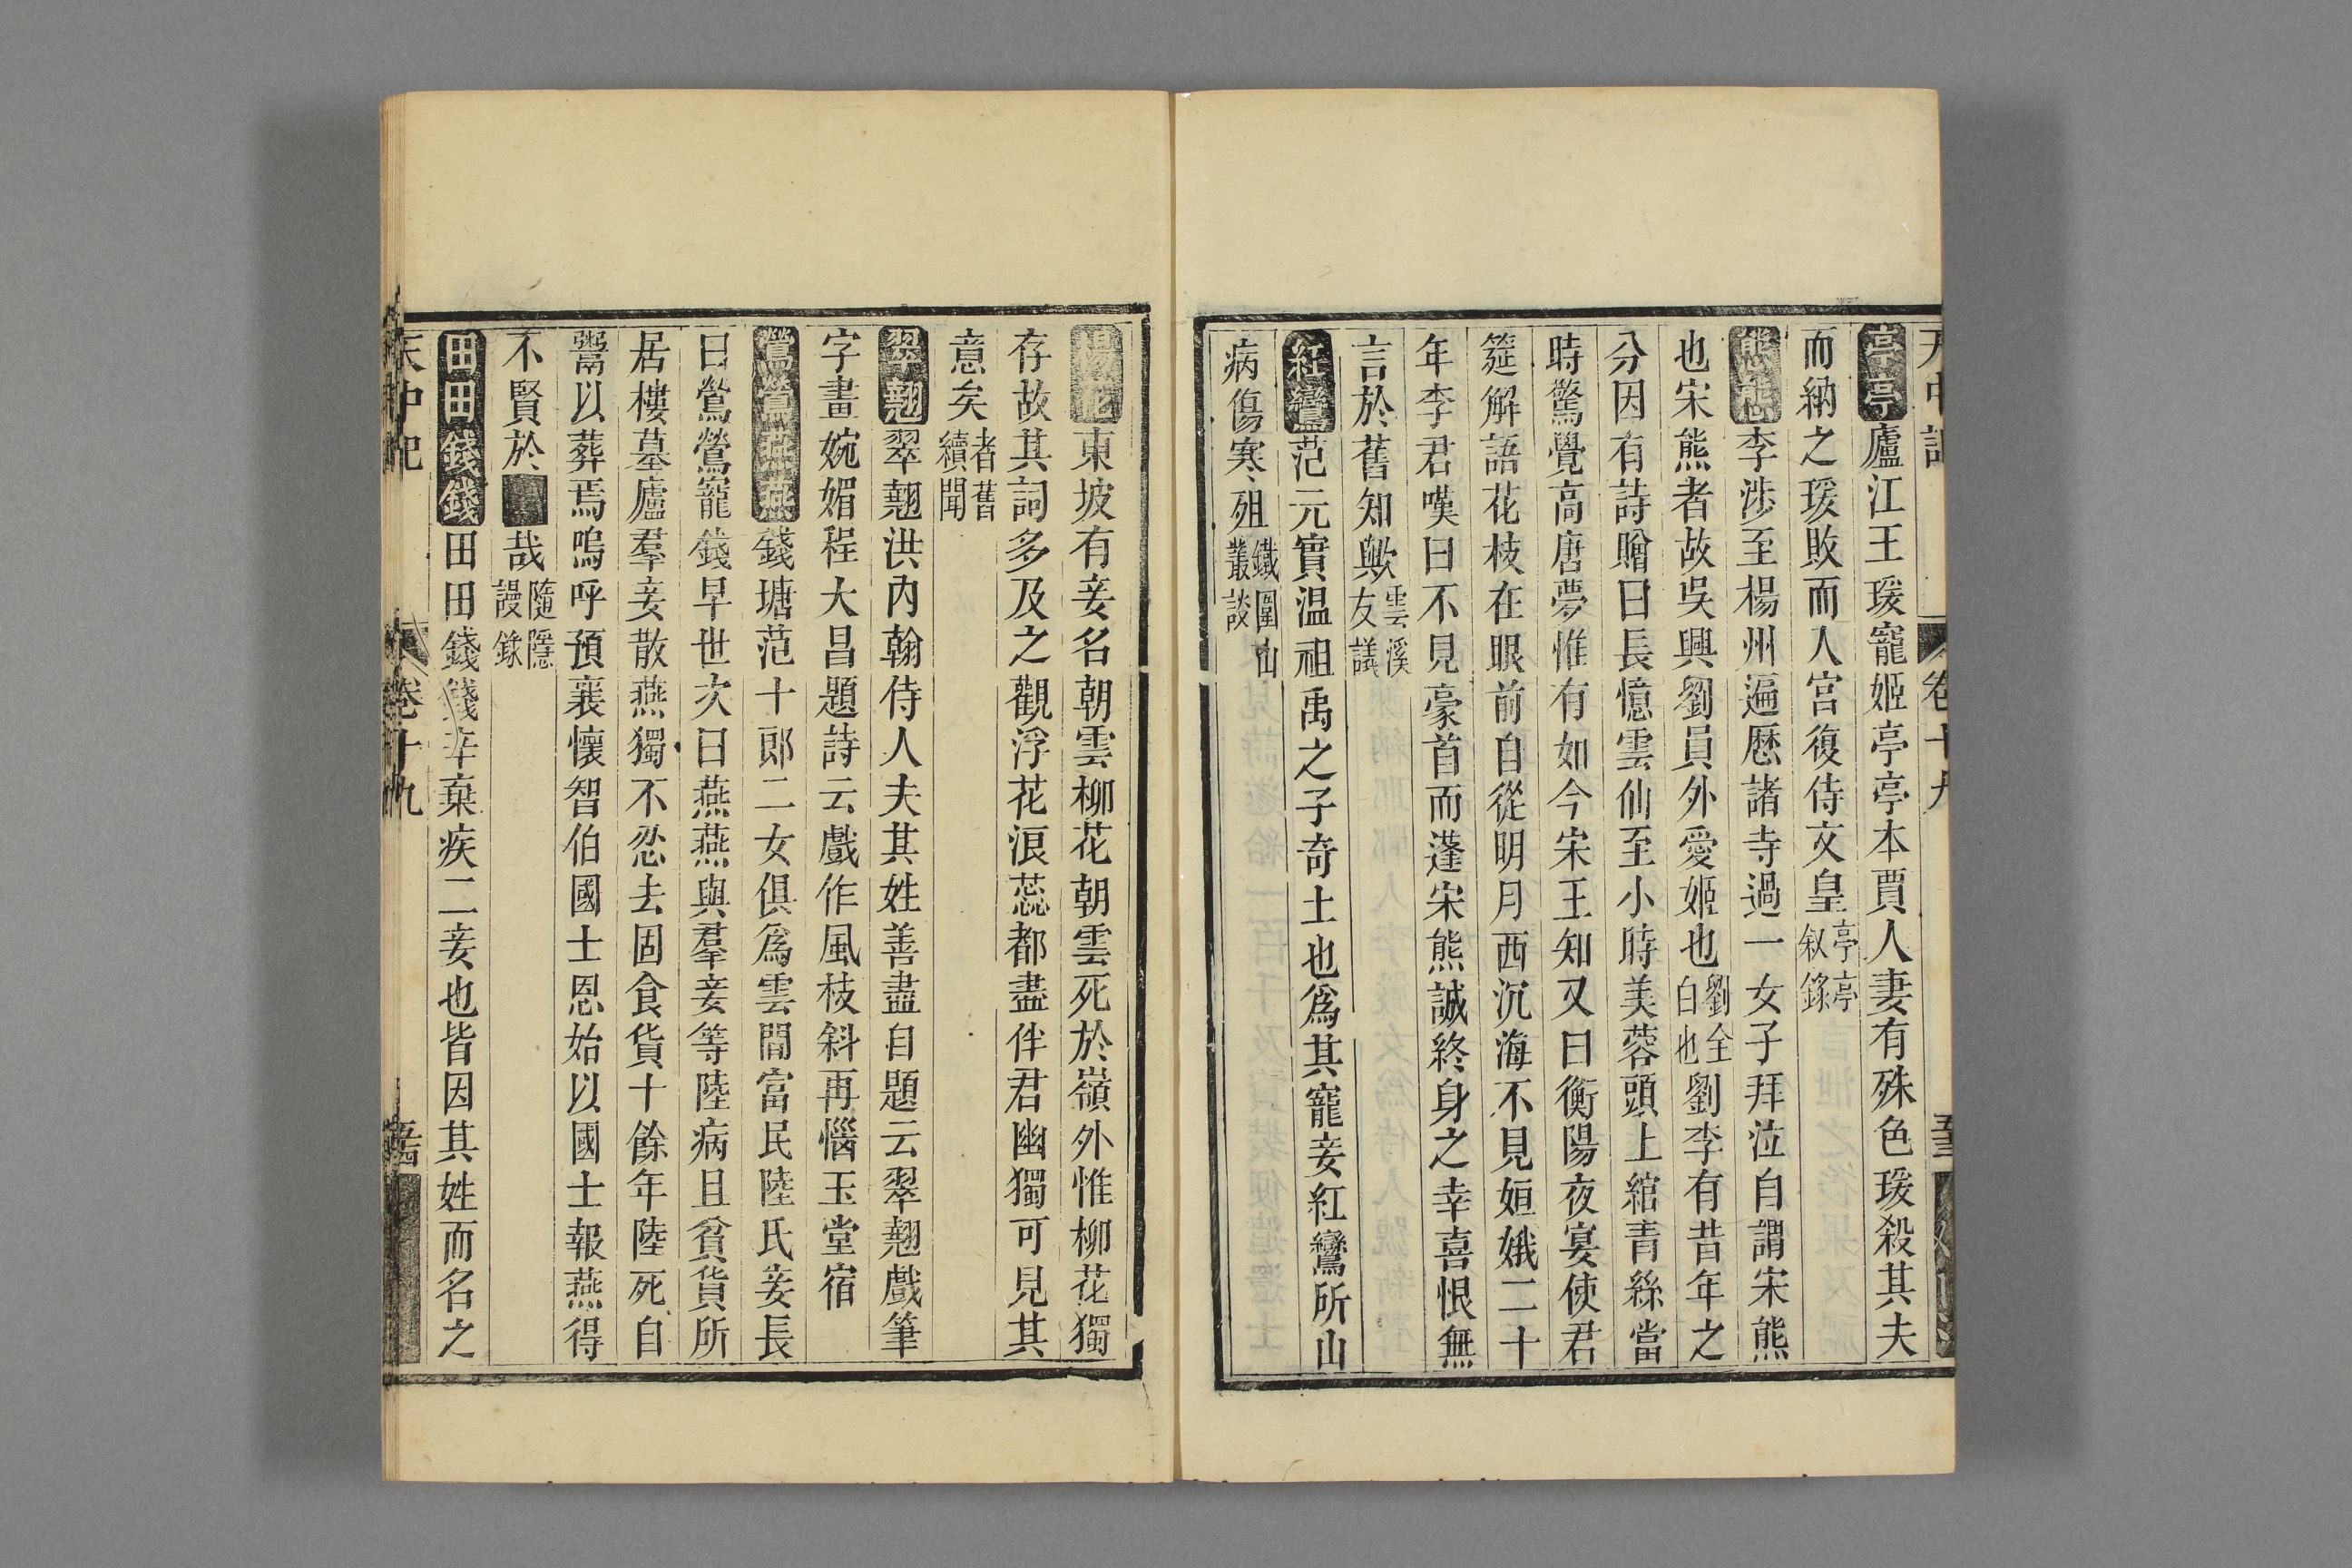 亭亭廬江王瑗寵姬亭亭本賈人妻有殊色瑗殺其夫
而納之瑗敗而入宮復侍文皇亭亭叙錄
熊熊李涉至楊州遍歷諸寺過一女子拜泣自謂宋熊
也宋熊者故吳興劉員外愛姬也劉全白也劉李有昔年之
分因有詩贈曰長憶雲仙至小時芙蓉頭上綰青絲當
時驚覺高唐夢惟有如今宋王知又曰衡陽夜宴使君
筵解語花枝在眼前自從明月西沉海不見姮娥二十
年李君嘆曰不見豪首而蓬宋熊誠終身之幸喜恨無
言於舊知歟雲溪友議
紅鸞范元實温祖禹之子奇士也爲其寵妾紅鸞所山
病傷寒殂鐵圍山叢談
東坡有妾名朝雲柳花朝雲死於嶺外惟柳花獨
存故其詞多及之觀浮花浪蕊都盡伴君幽獨可見其
意矣者舊續聞
翠翹翠翹洪内翰侍人夫其姓善盡自題云翠翹戲筆
字畫婉媚程大昌題詩云戲作風枝斜再惱玉堂宿
鶯鶯燕燕錢塘范十郎二女俱爲雲間富民陸氏妾長
曰鶯鶯寵錢早世次曰燕燕與羣妾等陸病且貧貨所
居樓墓廬羣妾散燕獨不忍去固食貨十餘年陸死自
鬻以葬焉嗚呼預襄懷智伯國士恩始以國士報燕得
不賢於哉隨隱謾錄
田田錢錢田田錢錢辛棄疾二妾也皆因其姓而名之
天中記
卷十九